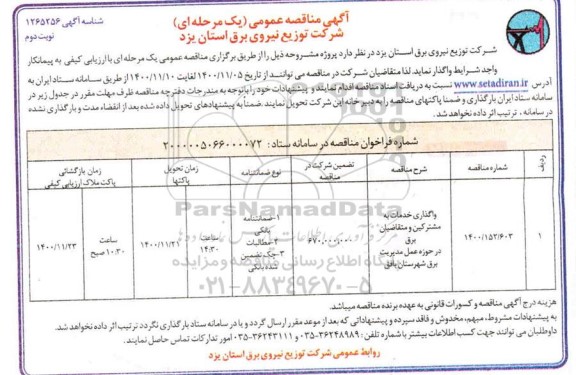 آگهی مناقصه عمومی (یک مرحله ای)
شرکت توزیع نیروی برق استان یزد
شناسه آگهی ۱۲۶۵۲۵۶
نوبت دوم
شرکت توزیع نیروی برق استان یزد در نظر دارد پروژه مشروحه ذیل را از طریق برگزاری مناقصه عمومی یک مرحله ای با ارزیابی کیفی به پیمانکار
واجد شرایط واگذار نماید. لذا متقاضیان شرکت در مناقصه می توانند از تاریخ ۱۴۰۰/۱۱/۰۵ لغایت ۱۴۰۰/۱۱/۱۰ از طریق سامانه ستاد ایران به
آدرس www.setadiran.ir نسبت به دریافت اسناد مناقصه اقدام نمایند و پیشنهادات خود را با توجه به مندرجات دفترچه مناقصه ظرف مهلت مقرر در جدول زیر در
سامانه ستاد ایران بارگذاری و ضمنا پاکتهای مناقصه را به دبیرخانه این شرکت تحویل نمایند. ضمناً به پیشنهادهای تحویل داده شده بعد از انقضاء مدت و بارگذاری نشده
در سامانه، ترتیب اثر داده نخواهد شد.
شماره فراخوان مناقصه در سامانه ستاد: ۲۰۰۰۰۰۵۰۶۶۰۰۰۰۷۲
ردیف شماره مناقصه شرح مناقصه تضمین شرکت در مناقصه نوع ضمانتنامه زمان تحویل پاکتها زمان بازگشائی پاکت ملاک ارزیابی کیفی
۱ ۱۴۰۰/۱۵۲/۶۰۳
واگذاری خدمات به
مشترکین و متقاضیان
برق
در حوزه عمل مدیریت
برق شهرستان بافق
۱-ضمانتنامه
بانکی
۲-مطالبات
۳-چک تضمین
شده بانکی
۱۴۰۰/۱۱/۲۱ ساعت ۱۴:۳۰
۱۴۰۰/۱۱/۲۳ ساعت ۱۰:۳۰ صبح
ParsNamadData
۰۲۱-۸۸۳۴۹۶۷۰-۵
هزینه درج آگهی مناقصه و کسورات قانونی به عهده برنده مناقصه میباشد.
به پیشنهادات مشروط، مبهم، مخدوش و فاقد سپرده و پیشنهاداتی که بعد از موعد مقرر ارسال گردد و یا در سامانه ستاد بارگذاری نگردد ترتیب اثر داده نخواهد شد.
داوطلبان می توانند جهت کسب اطلاعات بیشتر با شماره تلفن: ۳۶۲۴۸۹۸۹-۰۳۵ و ۳۶۲۴۳۱۱۱-۰۳۵ امور تدارکات تماس حاصل نمایند.
روابط عمومی شرکت توزیع نیروی برق استان یزد